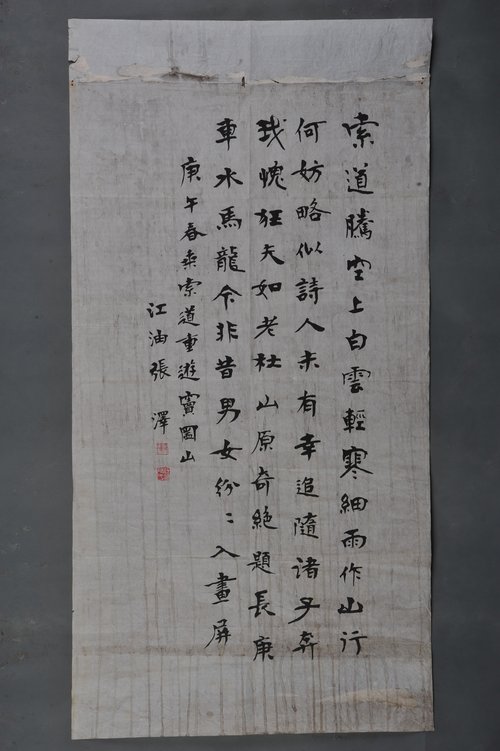 索道騰空上白雲輕寒細雨作山行
何妨略似詩人未有幸追隨諸子奔
我愧狂夫如老杜山原奇絕題長庚
車水馬龍今非昔男女紛〻入畫屏
庚午春乘索道重遊竇圌山
江油張澤